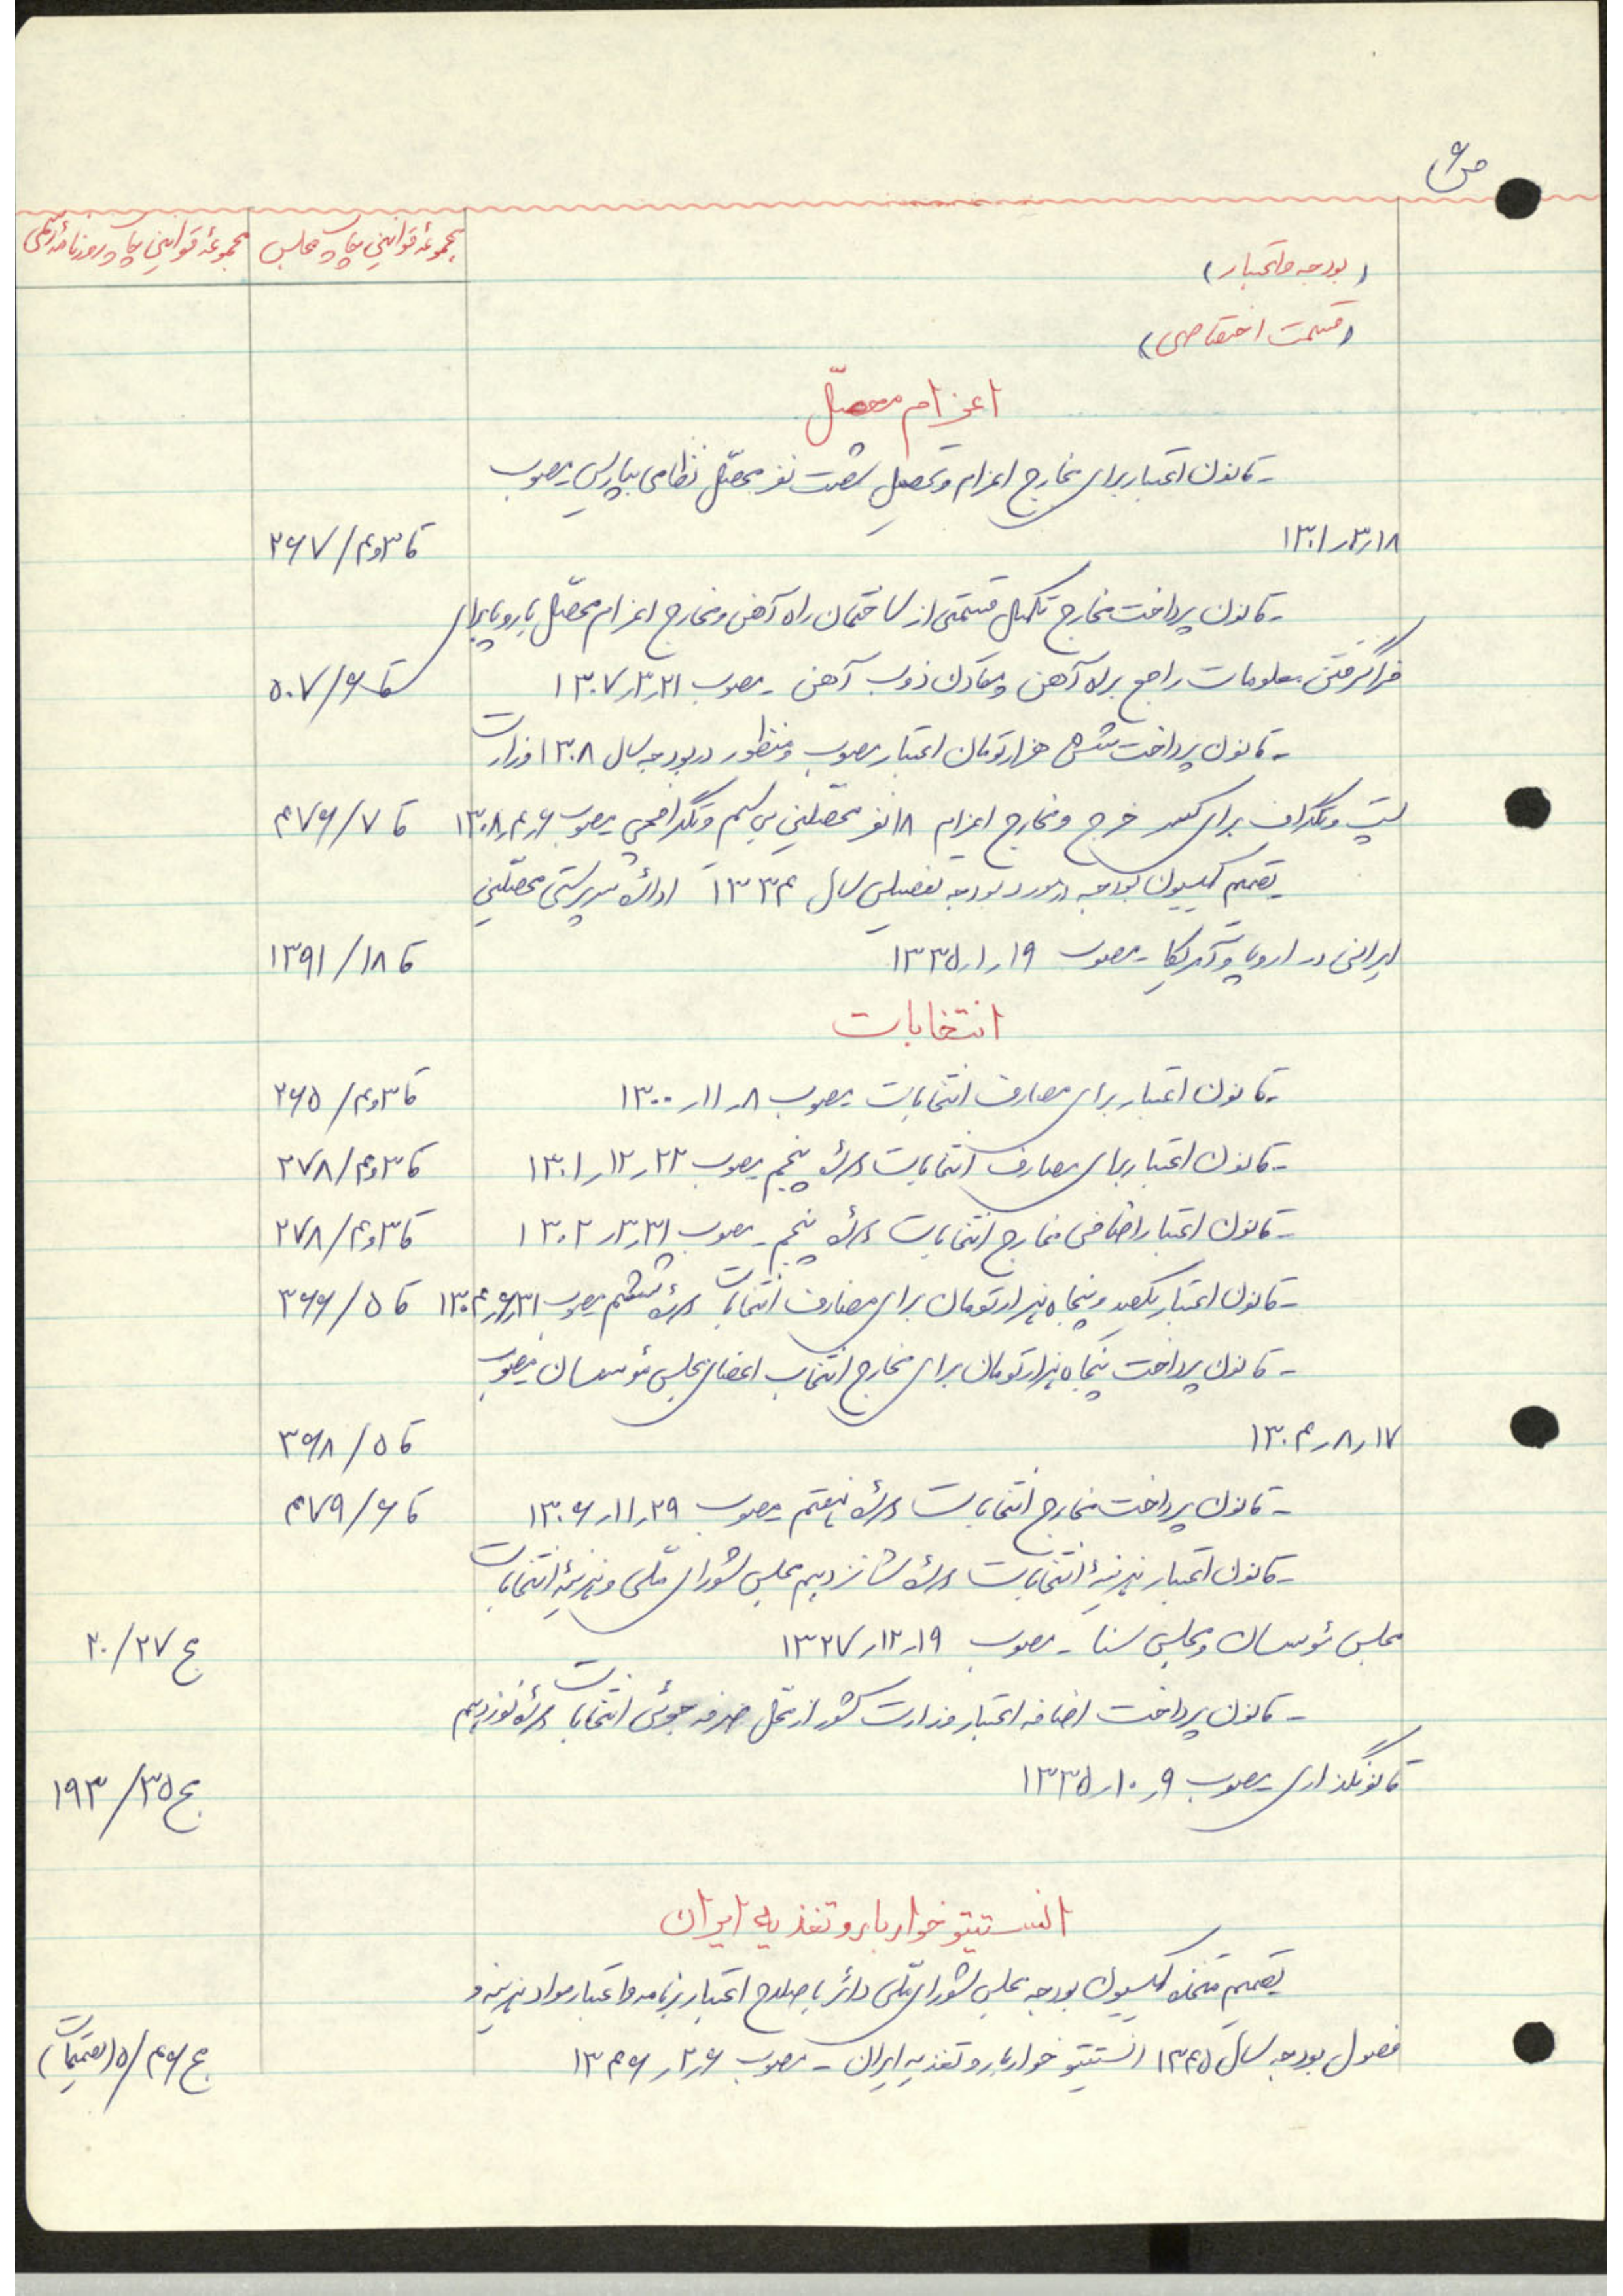 ص۶
مجموعهٔ قوانین چاپ مجلس
مجموعهٔ قوانین چاپ روزنامهٔ رسمی
(بودجه و اعتبار)
(قسمت اختصاصی)
اعزام محصّل
- قانون اعتبار برای مخارج اعزام و تحصیل شصت نفر محصّل نظامی بپاریس - مصوب
۱۳۰۱ر۳ر۱۸ قا ۳و۴/ ۲۶۷
- قانون پرداخت مخارج تکمیل قسمتی از ساختمان راه آهن و مخارج اعزام محصّل باروپا برای
فراگرفتن معلومات راجع براه آهن و معادن ذوب آهن - مصوب ۱۳۰۷ر۳ر۲۱ قا ۶/ ۵۰۷
- قانون پرداخت شش هزار تومان اعتبار مصوب و منظور در بودجه سال ۱۳۰۸ وزارت
پست و تلگراف برای کسر خرج و مخارج اعزام ۱۸ نفر محصّلین بی سیم و تلگرافچی - مصوب ۱۳۰۸ر۴ر۶ قا ۷/ ۴۷۶
تصمیم کمیسیون بودجه در مورد بودجه تفصیلی سال ۱۳۳۴ ادارهٔ سرپرستی محصّلین
ایرانی در اروپا و آمریکا - مصوب ۱۳۳۵ر۱ر۱۹ قا ۱۸/ ۱۳۹۱
انتخابات
- قانون اعتبار برای مصارف انتخابات - مصوب ۱۳۰۰ر۱۱ر۸ قا ۳و۴/ ۲۶۵
- قانون اعتبار برای مصارف انتخابات دورهٔ پنجم - مصوب ۱۳۰۱ر۱۲ر۲۲ قا ۳و۴/ ۲۷۸
- قانون اعتبار اضافی مخارج انتخابات دورهٔ پنجم - مصوب ۱۳۰۲ر۳ر۳۱ قا ۳و۴/ ۲۷۸
- قانون اعتبار یکصد و پنجاه هزار تومان برای مصارف انتخابات دورهٔ ششم - مصوب ۱۳۰۴ر۶ر۳۱ قا ۵/ ۳۶۶
- قانون پرداخت پنجاه هزار تومان برای مخارج انتخاب اعضای مجلس مؤسسان - مصوب
۱۳۰۴ر۸ر۱۷ قا ۵/ ۳۶۸
- قانون پرداخت مخارج انتخابات دورهٔ هفتم - مصوب ۱۳۰۶ر۱۱ر۲۹ قا ۶/ ۴۷۹
- قانون اعتبار هزینهٔ انتخابات دورهٔ شانزدهم مجلس شورای ملّی و هزینهٔ انتخابات
مجلس مؤسسان و مجلس سنا - مصوب ۱۳۲۷ر۱۲ر۱۹ ج ۲۷/ ۲۰
- قانون پرداخت اضافه اعتبار وزارت کشور از محلّ صرفه جوئی انتخابات دورهٔ نوزدهم
قانونگذاری - مصوب ۱۳۳۵ر۱۰ر۹ ج ۳۵/ ۱۹۳
انستیتو خواربار و تغذیه ایران
تصمیم متخذه کمیسیون بودجه مجلس شورای ملّی دائر باصلاح اعتبار برنامه و اعتبار مواد هزینه و
فصول بودجه سال ۱۳۴۵ انستیتو خواربار و تغذیه ایران - مصوب ۱۳۴۶ر۲ر۶ ج ۴۶/ ۵(تصمیمات)